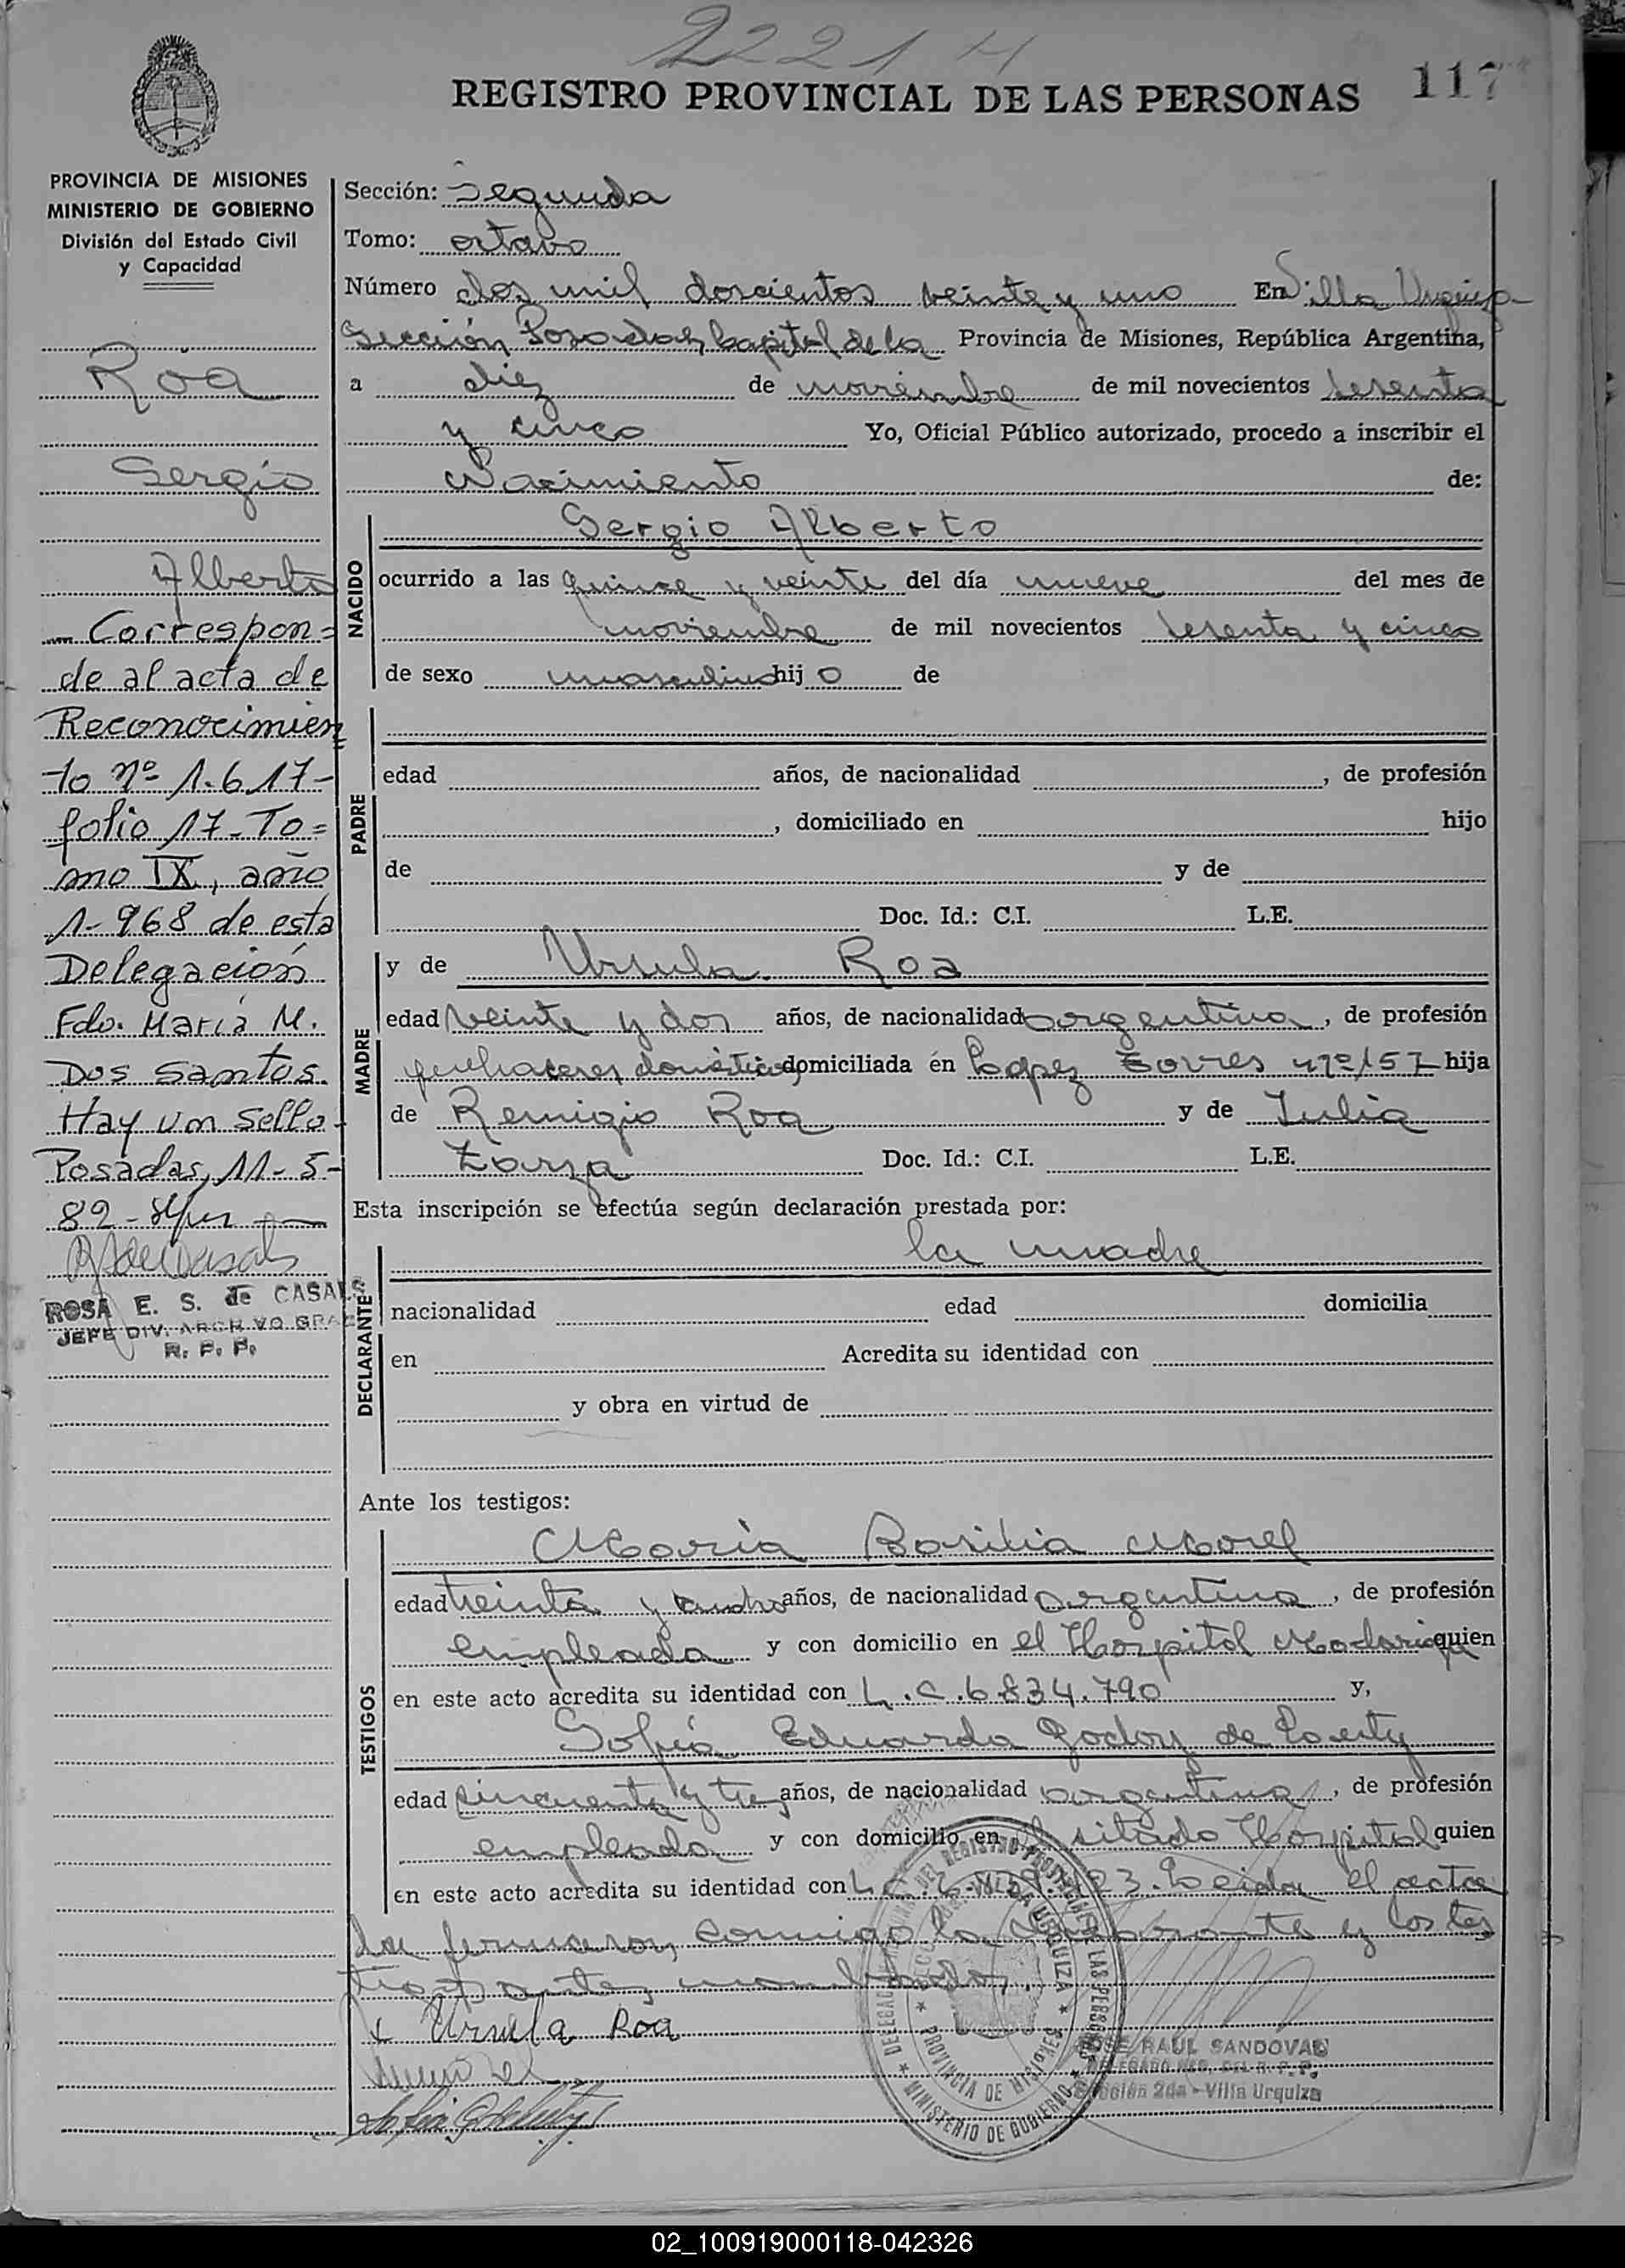 2221 H
REGISTRO PROVINCIAL DE LAS PERSONAS 117
PROVINCIA DE MISIONES
MINISTERIO DE GOBIERNO
División del Estado Civil
y Capacidad
Roa
Sergio
Alberto
Correspon=
de al acta de
Reconocimien
to nº 1.617-
folio 17-To=
mo IX, año
1-968 de esta
Delegación
Fdo. María M.
Dos Santos.
Hay un sello-
Posadas, 11-5-
82-
ROSA E. S. de CASALS
JEFE DIV. ARCHIVO GRAL
R. P. P.
Sección: Segunda
Tomo: octavo
Número dos mil doscientos veinte y uno En Villa Urquiza
Sección Posadas Capital de la Provincia de Misiones, República Argentina,
a diez de noviembre de mil novecientos sesenta
y cinco Yo, Oficial Público autorizado, procedo a inscribir el
Nacimiento de:
NACIDO
Sergio Alberto
ocurrido a las quince y veinte del día nueve del mes de
noviembre de mil novecientos sesenta y cinco
de sexo masculino hijo de
PADRE
edad años, de nacionalidad , de profesión
, domiciliado en hijo
de y de
Doc. Id.: C.I. L.E.
MADRE
y de Ursula Roa
edad veinte y dos años, de nacionalidad argentina, de profesión
quehaceres domésticos domiciliada en Lopez Torres nº 157 hija
de Remigio Roa y de Julia
Zarza Doc. Id.: C.I. L.E.
Esta inscripción se efectúa según declaración prestada por:
DECLARANTE
la madre
nacionalidad edad domicilia
en Acredita su identidad con
y obra en virtud de
Ante los testigos:
TESTIGOS
María Basilia Morel
edad treinta y años, de nacionalidad argentina, de profesión
empleada y con domicilio en el Hospital Madariaga quien
en este acto acredita su identidad con L.C.6.834.790 y,
Sofia Eduarda Godoy de
edad cincuenta y tres años, de nacionalidad argentina, de profesión
empleada y con domicilio en el sitado Hospital quien
en este acto acredita su identidad con L.C. Leida el acta
la firmaron conmigo la y los tes
tigos antes nombrados.
x Ursula Roa
DELEGACION DEL REGISTRO PROVINCIAL DE LAS PERSONAS
VILLA URQUIZA
PROVINCIA DE MISIONES
MINISTERIO DE GOBIERNO
JOSE RAUL SANDOVAL
DELEGADO DEL R. P. P.
Sección 2da - Villa Urquiza
02_100919000118-042326